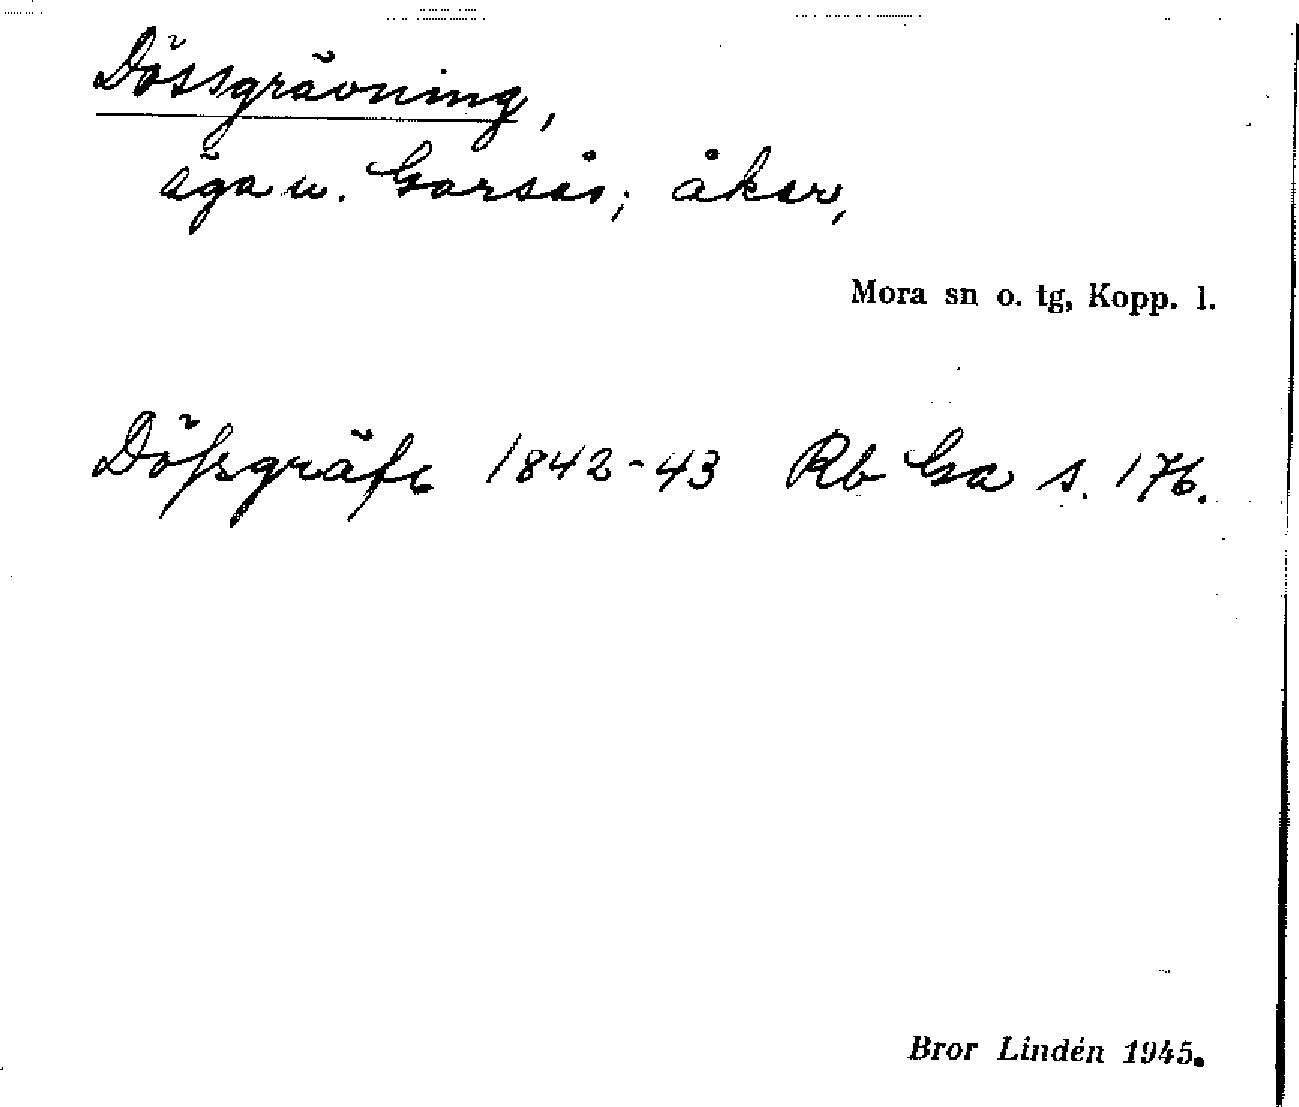 Dössgrävning,
äga u. Garsås; åker,
Mora sn o. tg, Kopp. l.
Dößgräfe 1842-43 Rb Ga s. 176.
Bror Lindén 1945.